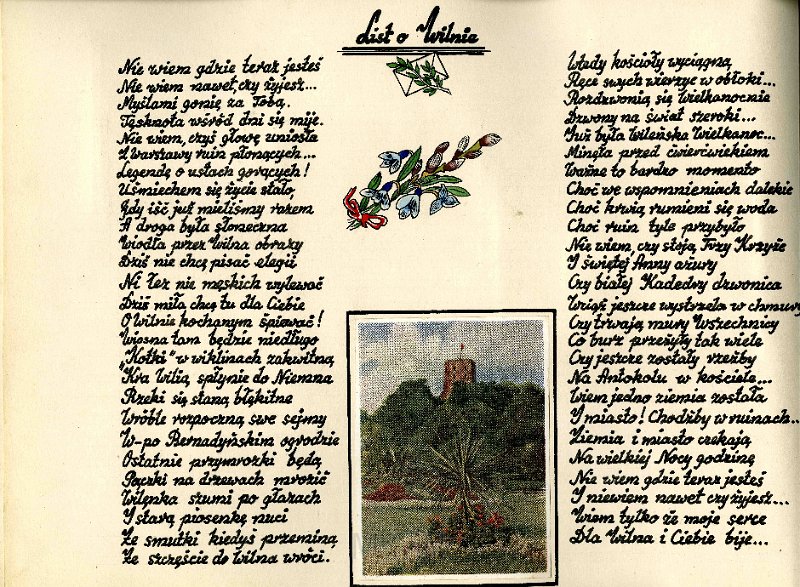 List o Wilnie
Nie wiem gdzie teraz jesteś
Nie wiem nawet, czy żyjesz...
Myślami gonię za Tobą.
Tęsknota wśród dni się mije.
Nie wiem, czyś głowę uniosła
Z Warszawy ruin płonących...
Legendę o ustach gorących!
Uśmiechem się życie stało,
Gdy iść już mieliśmy razem
A droga była słoneczna
Wiodła przez Wilna obrazy
Dziś nie chcę pisać elegii
Ni łez nie męskich wylewać
Dziś miła chcę tu dla Ciebie
O Wilnie kochanym śpiewać!
Wiosna tam będzie niedługo
"Kotki" w wiklinach zakwitną
Kra Wilią, spłynie do Niemna
Rzeki się staną błękitne
Wróble rozpoczną swe sejmy
W-po Bernadyńskim ogrodzie
Ostatnie przymrozki będą
Pączki na drzewach mrozić
Wilenka szumi po głazach
I starą piosenkę nuci
Że smutki kiedyś przeminą
Że szczęście do Wilna wróci.
Wtedy kościoły wyciągną
Ręce swych wierzyc w obłoki...
Rozdzwonią się Wielkanocnie
Dzwony na świat szeroki...
Już była Wileńska Wielkanoc...
Minęła przed ćwierćwiekiem
Ważne to bardzo momento
Choć we wspomnieniach dalekie
Choć krwią rumieni się woda
Choć ruin tyle przybyło
Nie wiem, czy stoją Trzy Krzyże
I świętej Anny ażury
Czy białej Katedry dzwonica
Wciąż jeszcze wystrzela w chmury
Czy trwają mury Wszechnicy
Co burz przeżyły tak wiele
Czy jeszcze zostały rzeźby
Na Antokolu w kościele...
Wiem jedno ziemia została
I miasto! Chodźby w ruinach...
Ziemia i miasto czekają
Na wielkiej Nocy godzinę
Nie wiem gdzie teraz jesteś
I niewiem nawet czy żyjesz...
Wiem tylko że moje serce
Dla Wilna i Ciebie bije...